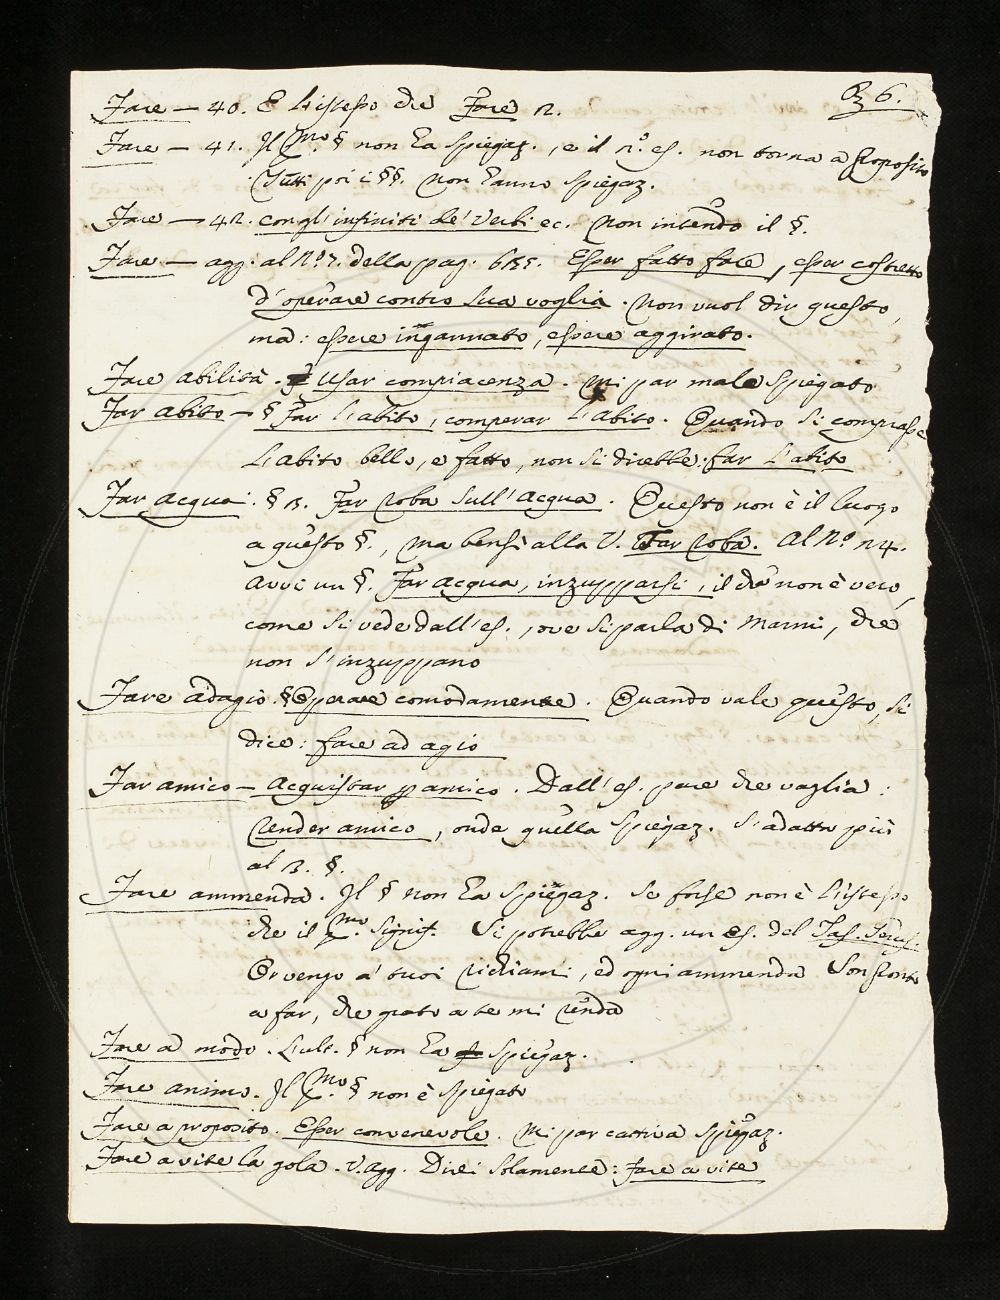 36.
Fare — 40. È l'istesso che Fare 2.
Fare — 41. Il pmo § non ha spiegaz., e il 2.º es. non torna a proposito
Tutti poi i §§. non hanno spiegaz.
Fare — 42. con gl'infiniti de' Verbi ec. Non intendo il §.
Fare — agg. al Nº 7. della pag. Esser fatto fare, esser costretto
d'operare contro sua voglia. Non vuol dir questo,
ma: essere ingannato, essere aggirato.
Fare abilità. Usar compiacenza. Mi par male spiegato
Far abito — § Far l'abito, comperar l'abito. Quando si comprasse
l'abito bello, e fatto, non si direbbe: far l'abito
Far acqua. § 3. Far roba sull'acqua. Questo non è il luogo
a questo §., ma bensì alla V. Far roba. Al Nº 24.
avvi un §. Far acqua, inzupparsi, il che non è vero,
come si vede dall'es., ove si parla di Marmi, che
non s'inzuppano
Fare adagio. § Operare comodamente. Quando vale questo, si
dice: fare ad agio
Far amico — Acquistar amico. Dall'es. pare che vaglia:
render amico, onde quella spiegaz. s'adatta più
al 3. §.
Fare ammenda. Il § non ha spiegaz. Se forse non è l'istesso
che il pmo. signif. Si potrebbe agg. un es. del Tas. Gerus.
Or vengo a' tuoi richiami, ed ogni ammenda son pronto
a far, che grato a te mi renda
Fare a modo. L'ult. § non ha spiegaz.
Fare animo. Il pmo. § non è spiegato
Fare a proposito. Esser convenevole. Mi par cattiva spiegaz.
Fare a vite la gola. V. agg. Direi solamente: fare a vite